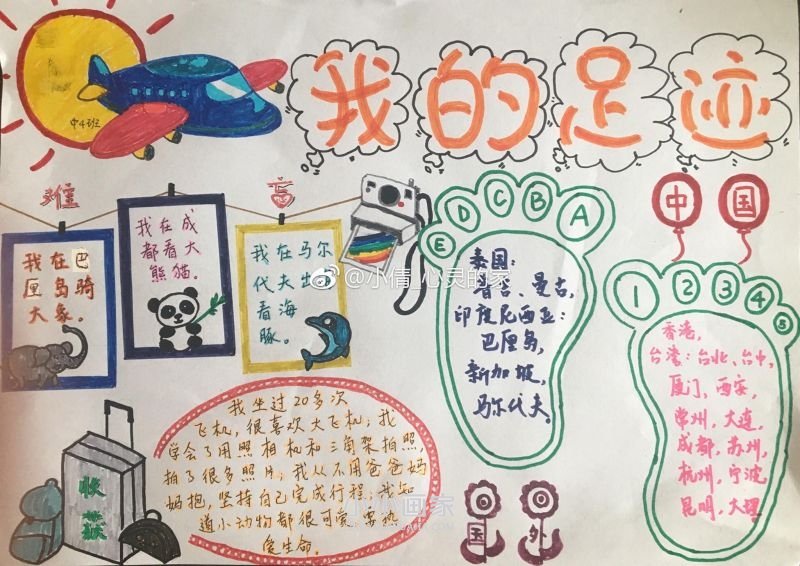 我的足迹
中4班
难
忘
中
国
我在巴
厘岛骑
大象。
我在成
都看大
熊猫。
我在马尔
代夫出海
看海
豚。
@小倩 心灵的家
E
D
C
B
A
泰国：
普吉、曼谷，
印度尼西亚：
巴厘岛，
新加坡，
马尔代夫。
1
2
3
4
5
香港，
台湾：台北、台中，
厦门，西安，
常州，大连，
成都，苏州，
杭州，宁波，
昆明，大理
我坐过20多次
飞机，很喜欢大飞机；我
学会了用照相机和三角架拍照，
拍了很多照片；我从不用爸爸妈
妈抱，坚持自己完成行程；我知
道小动物都很可爱，要热
爱生命。
收
获
国
外